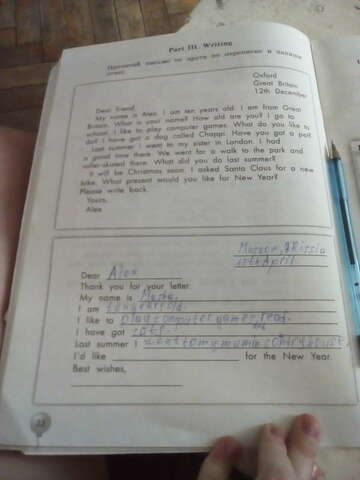 Part III. Writing
Прочитай письмо от друга по переписке и напиши
ответ.
Oxford
Great Britain
12th December
Dear friend,
My name is Alex. I am ten years old. I am from Great
Britain. What is your name? How old are you? I go to
school. I like to play computer games. What do you like to
do? I have got a dog called Chappi. Have you got a pet?
Last summer I went to my sister in London. I had
a good time there. We went for a walk to the park and
roller-skated there. What did you do last summer?
It will be Christmas soon. I asked Santa Claus for a new
bike. What present would you like for New Year?
Please write back.
Yours,
Alex
Moscow, Russia
10th April
Dear Alex
Thank you for your letter.
My name is Masha.
I am ten years old
I like to play computer games, read.
I have got
Last summer I went to my mum in
I'd like for the New Year.
Best wishes,